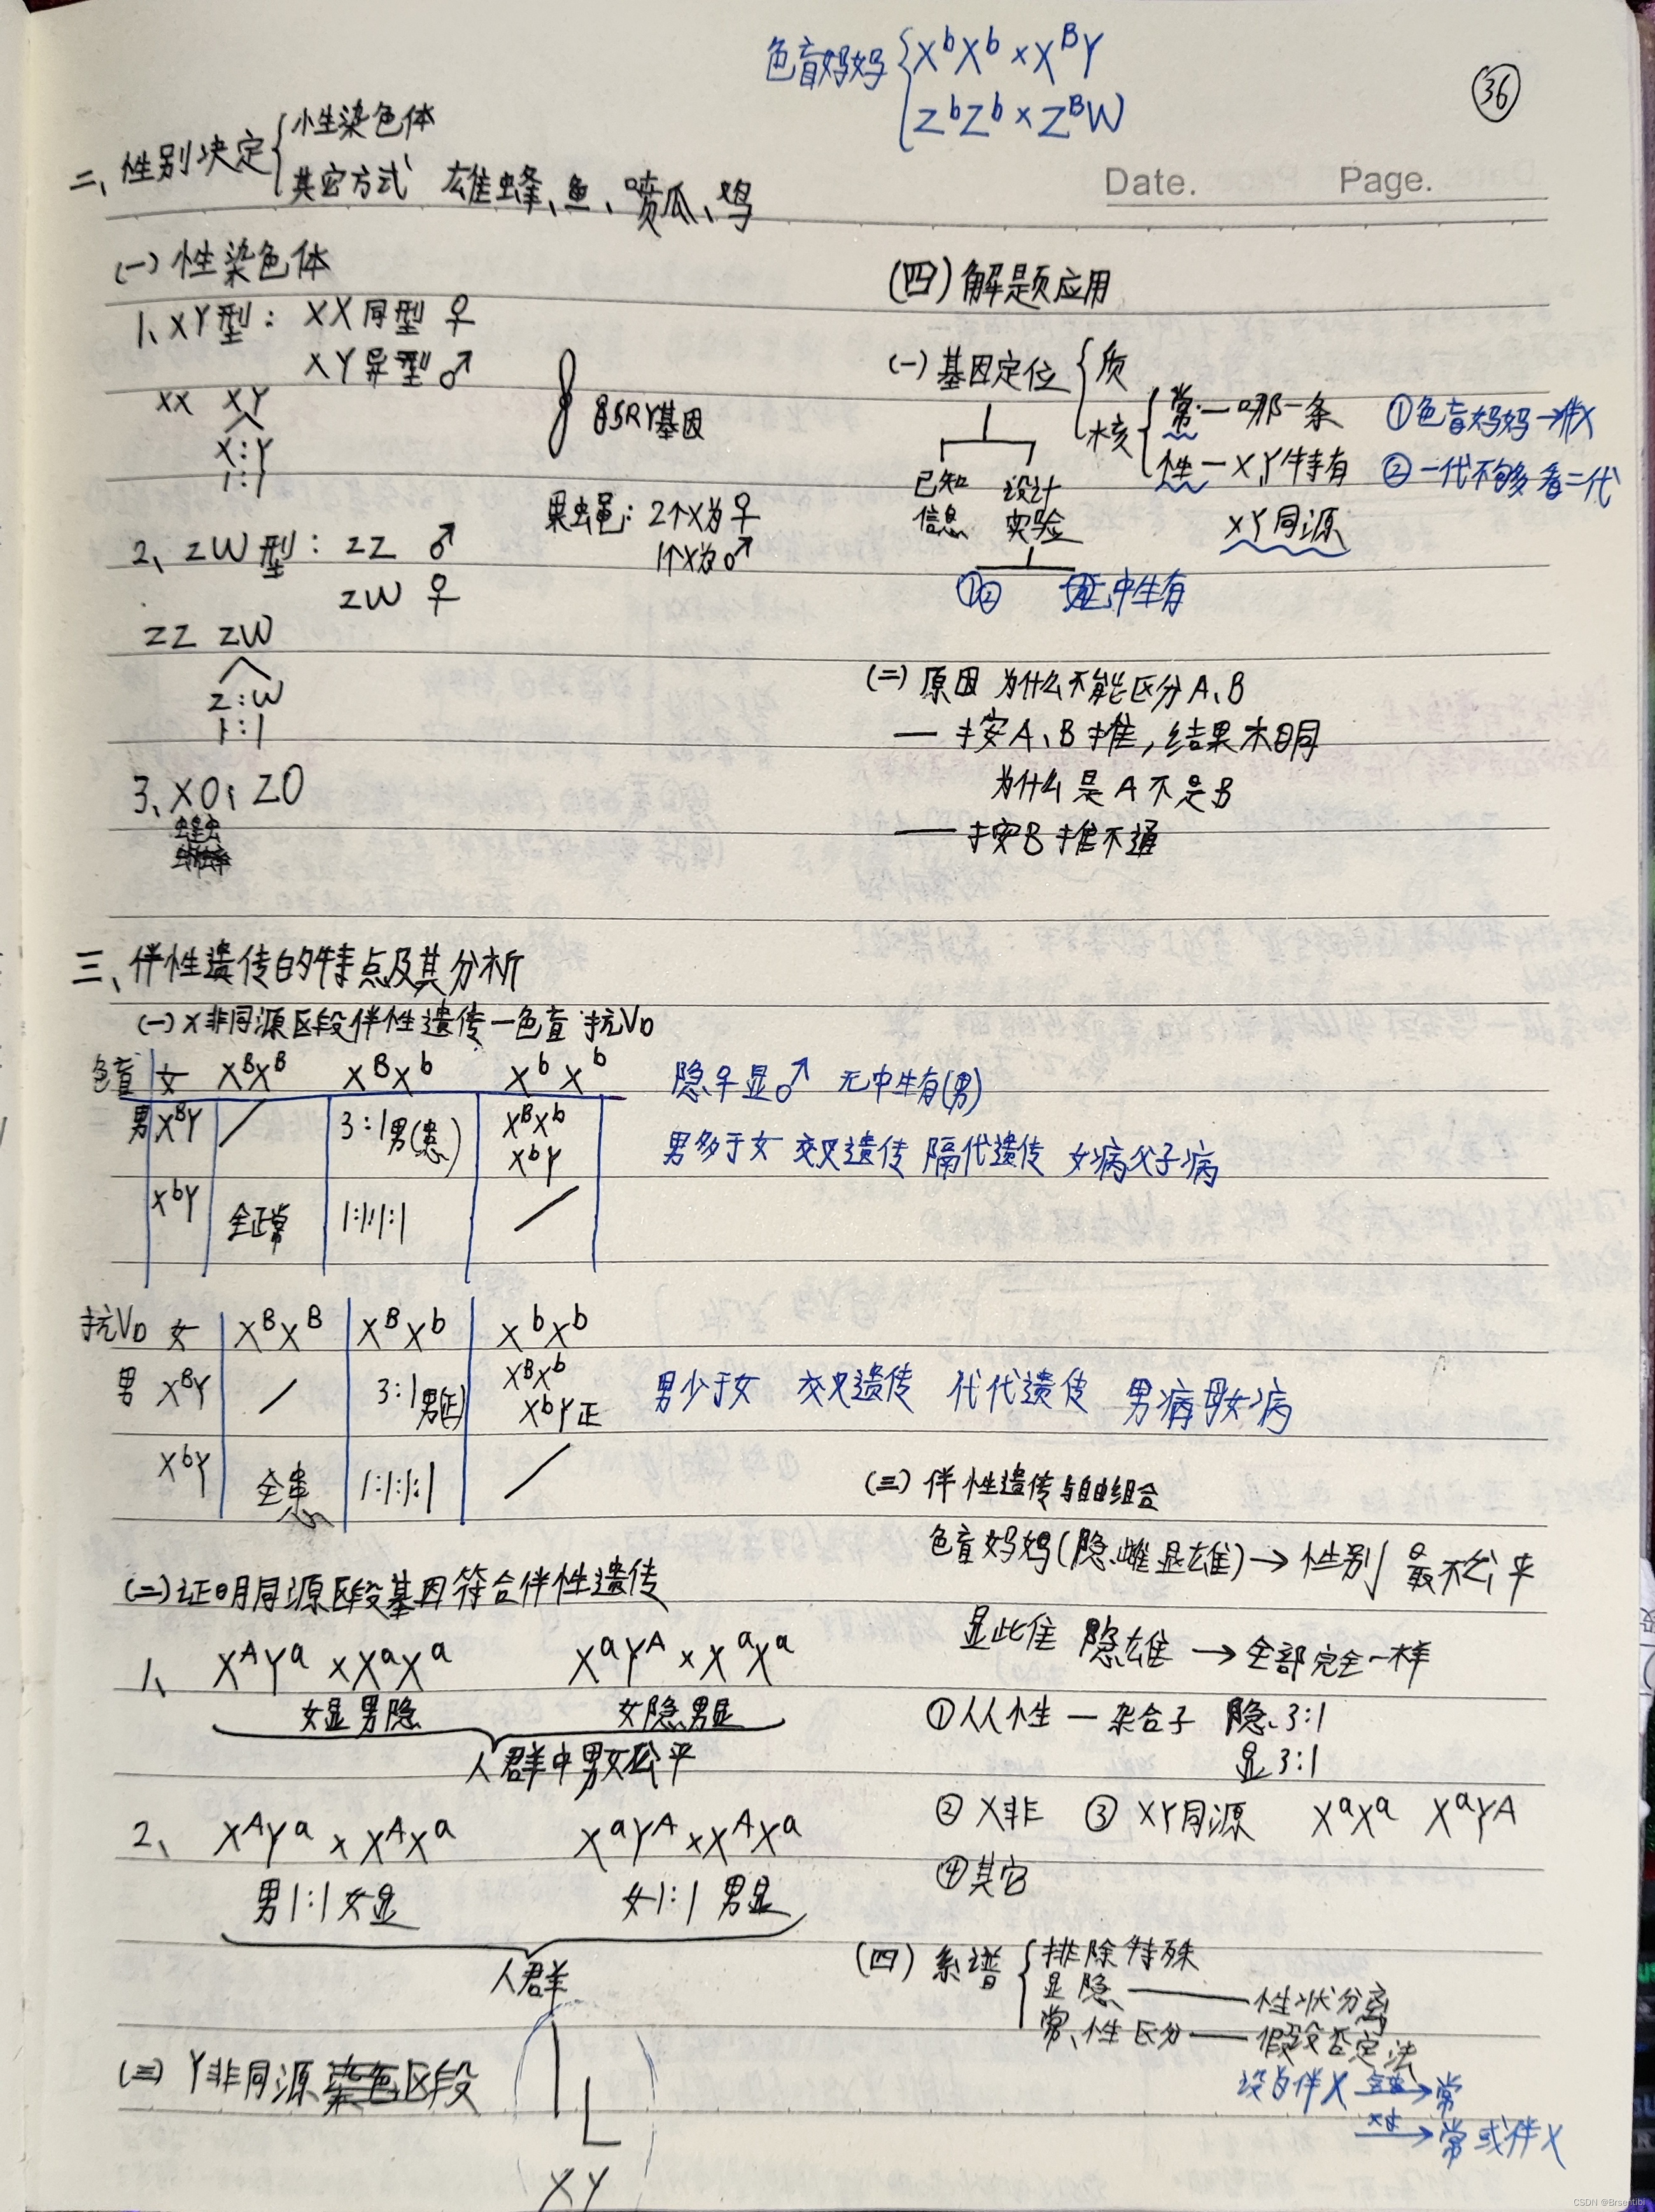 色盲妈妈 { XᵇXᵇ × XᴮY
ZᵇZᵇ × ZᴮW
36
Date. Page.
二、性别决定 { 性染色体
其它方式 雄蜂、鱼、喷瓜、鸡
(一) 性染色体
1、XY型: XX同型 ♀
XY异型 ♂
XX XY
X:Y
1:1
SRY基因
果蝇: 2个X为♀
1个X为♂
2、ZW型: ZZ ♂
ZW ♀
ZZ ZW
Z:W
1:1
3、XO; ZO
三、伴性遗传的特点及其分析
(一) X非同源区段伴性遗传—色盲 抗VD
色盲 女 XᴮXᴮ XᴮXᵇ XᵇXᵇ
男 XᴮY / 3:1男(患) XᴮXᵇ
XᵇY
XᵇY 全正常 1:1:1:1 /
隐♀显♂ 无中生有(男)
男多于女 交叉遗传 隔代遗传 女病父子病
抗VD 女 XᴮXᴮ XᴮXᵇ XᵇXᵇ
男 XᴮY / 3:1男(正) XᴮXᵇ
XᵇY正
XᵇY 全患 1:1:1:1 /
男少于女 交叉遗传 代代遗传 男病母女病
(二) 证明同源区段基因符合伴性遗传
1、 XᴬYᵃ × XᵃXᵃ XᵃYᴬ × XᵃXᵃ
女显男隐 女隐男显
人群中男女公平
2、 XᴬYᵃ × XᴬXᵃ XᵃYᴬ × XᴬXᵃ
男1:1 女显 女1:1 男显
人群
(三) Y非同源区段
X Y
(四) 解题应用
(一) 基因定位 { 质
核 { 常—哪一条
性—X,Y特有
XY同源
已知 设计
信息 实验
①② 无中生有
①色盲妈妈→伴X
②一代不够看二代
(二) 原因 为什么不能区分A、B
— 按A、B推,结果相同
为什么是A不是B
— 按B推不通
(三) 伴性遗传与自由组合
色盲妈妈(隐雌显雄)→性别 最不公平
显雌 隐雄 →全部完全一样
①人人性—杂合子 隐3:1
显3:1
②X非 ③XY同源 XᵃXᵃ XᵃYᴬ
④其它
(四) 系谱 { 排除特殊
显隐——性状分离
常、性区分——假设否定法
设为伴X → 常
→ 常或伴X
CSDN @Brsentibi